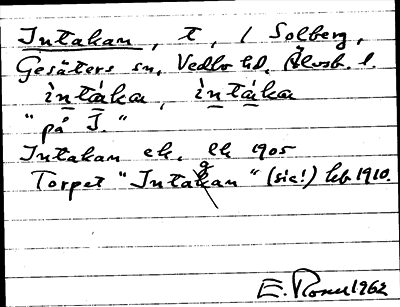 Intakan, t, / Solberg,
Gesäters sn, Vedbo hd, Älvsb. l.
ìntáka, ìntáka
"på I."
Intakan ek. lk 1905
Torpet "Intakan" (sic!) hfb 1910.
E. Rosell 1962